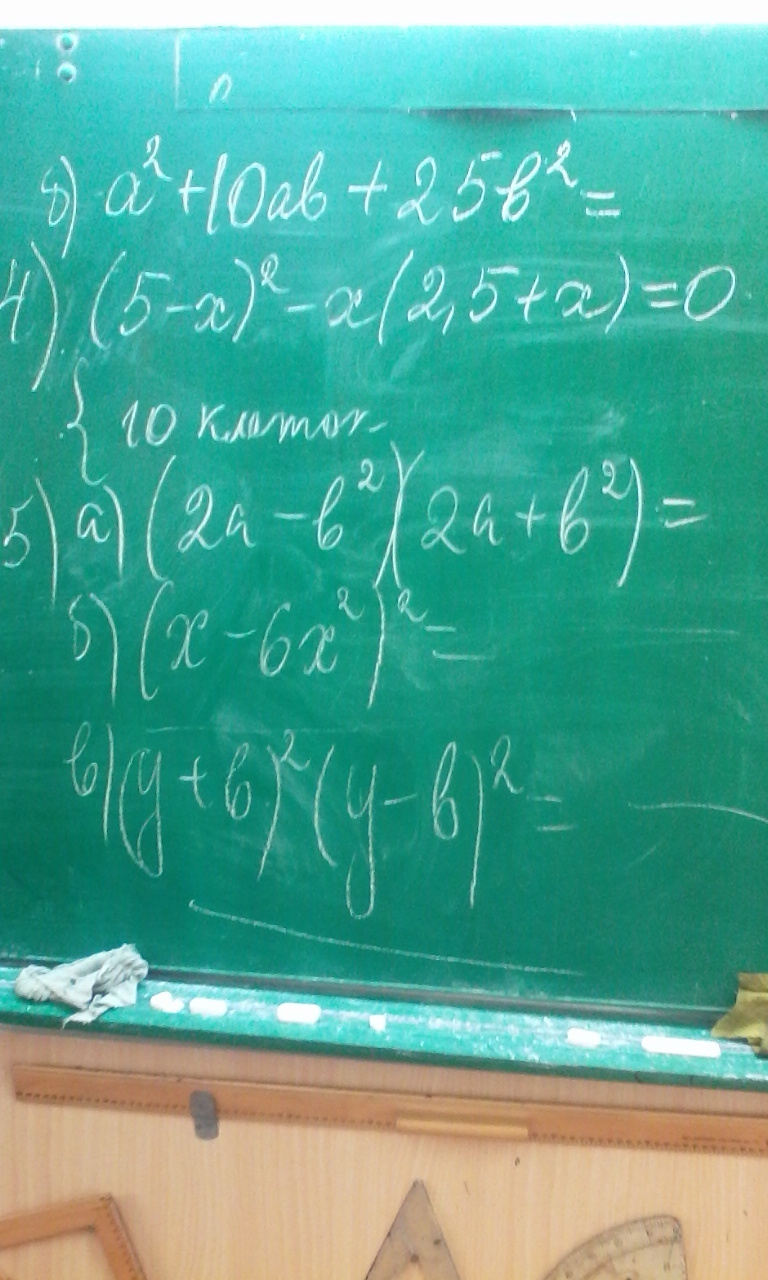 п
б) a² + 10ab + 25b² =
4) (5 - x)² - x(2,5 + x) = 0
{ 10 клеток
5) а) (2a - b²)(2a + b²) =
б) (x - 6x²)² =
в) (y + b)² (y - b)² =